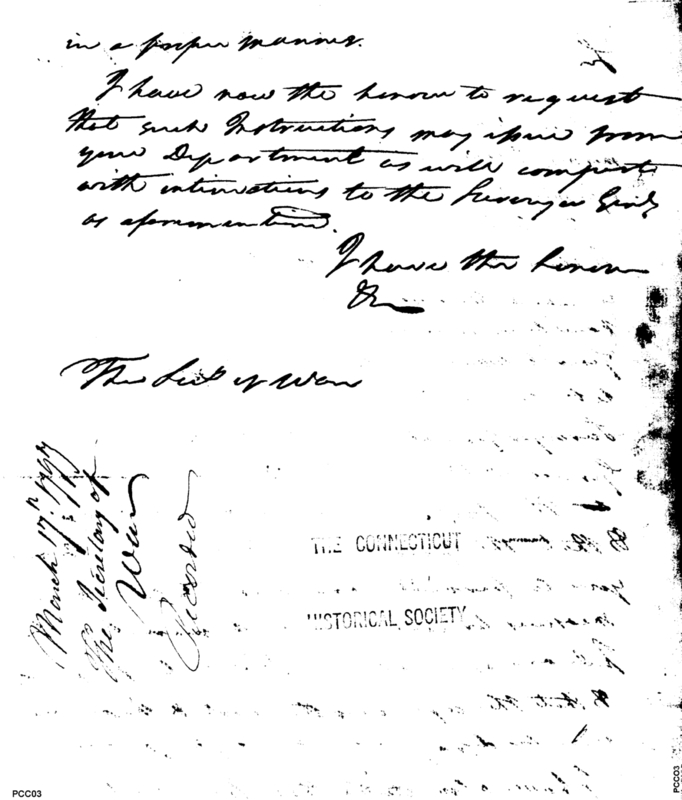 in a proper manner.
I have now the honour to request
that such Instructions may issue from
your Department as will comport
with intimations to the Surveyor Genl,
as aforementioned.
I have the honour
&c
The Secy of War
March 17th 1797
The Secretary of
War
Recorded
THE CONNECTICUT
HISTORICAL SOCIETY
PCC03
PCC03